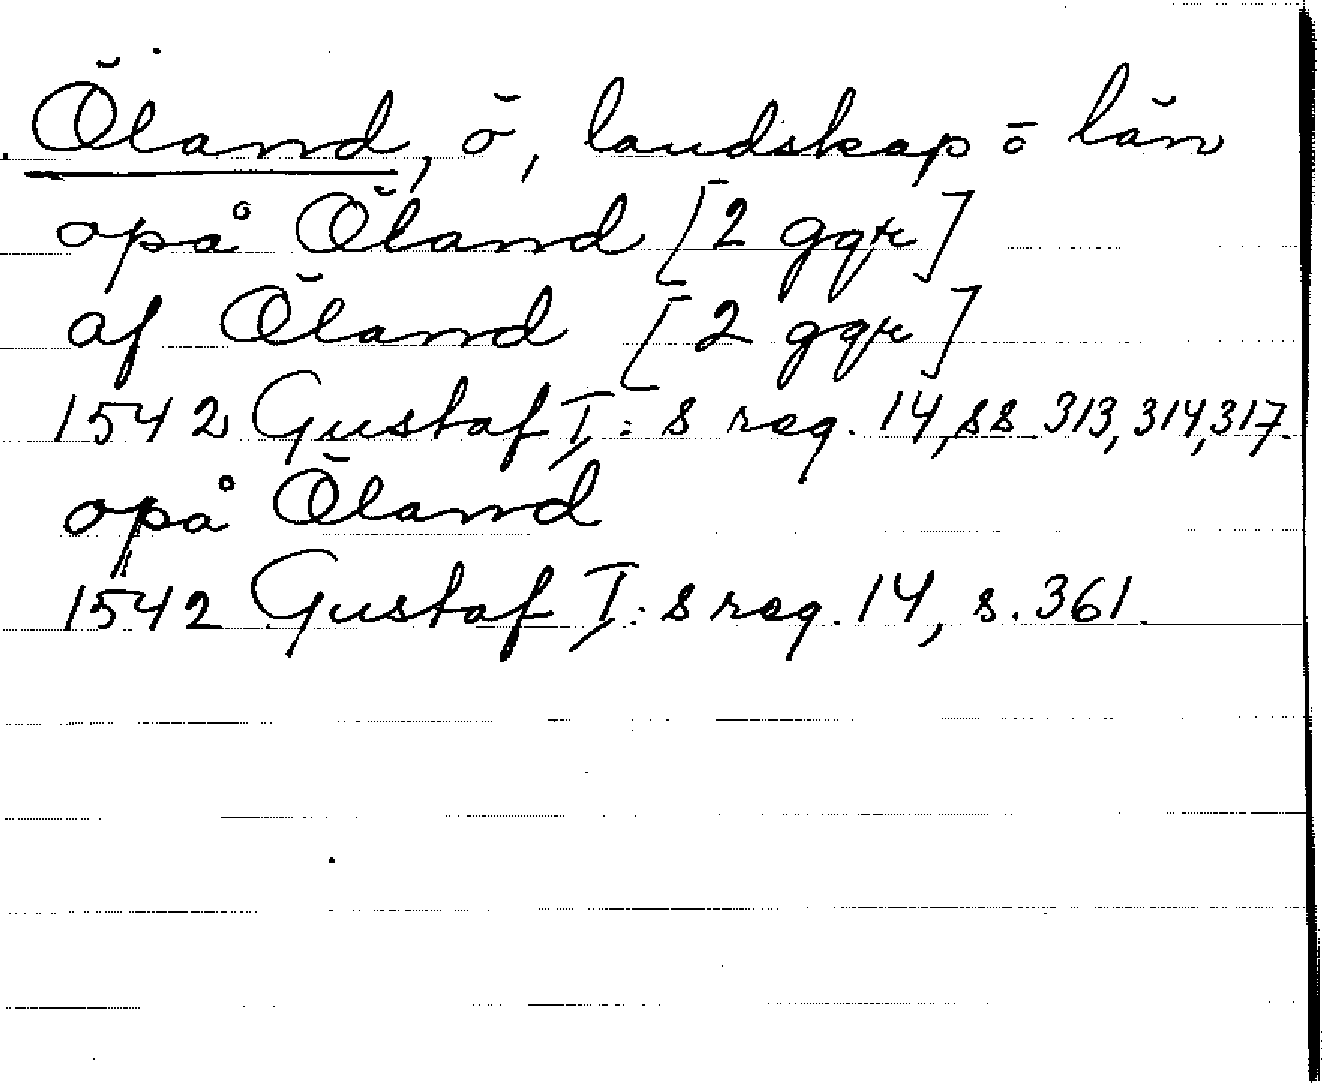 Öland, ö, landskap o län
opå Öland [2 ggr]
af Öland [2 ggr]
1542 Gustaf I:s reg. 14, ss 313, 314, 317.
opå Öland
1542 Gustaf I:s reg. 14, s. 361.